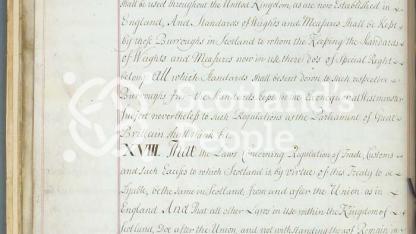 shall be used throughout the United Kingdom, as are now Established in
England, And Standards of Weights and Measures shall be kept
by those Burroughs in Scotland to whom the Keeping the Standards
of Weights and Measures now in use there does of Special Right
belong All which Standards shall be sent down to such respective
Burroughs from the Standards kept in the Exchequer at Westminster
Subject nevertheless to such Regulations as the Parliament of Great
Brittain shall think fit
XVIII. That the Laws Concerning Regulation of Trade, Customs
and such Excises to which Scotland is by virtue of this Treaty to be
lyable, be the same in Scotland, from and after the Union as in
England And That all other Laws in use within the Kingdom of
Scotland, Doe after the Union, and notwithstanding thereof Remain in
Scotland's
People